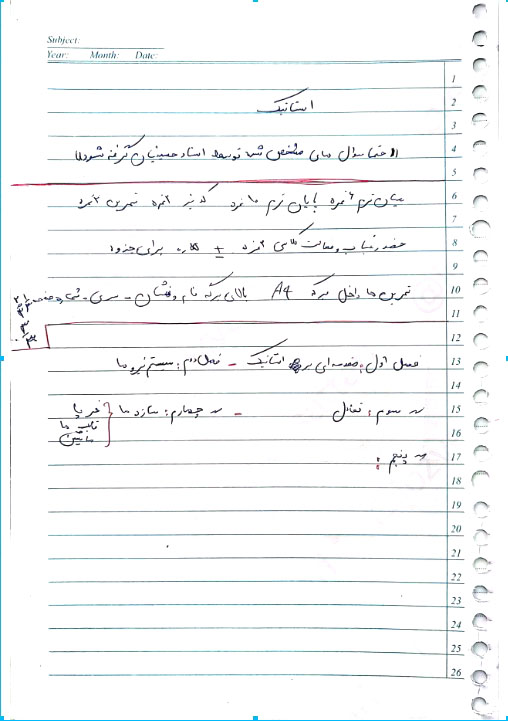 Subject:
Year: Month: Date:
1
2 استاتیک
3
4 حتما سوال های مشخص شده توسط استاد حسینیان گرفته شود!!
5
6 میان ترم ۶ نمره پایان ترم ۱۰ نمره کوئیز ۲ نمره تمرین ۲ نمره
7
8 حضور غیاب و فعالیت کلاسی ± برای جزوه
9
10 تمرین ها داخل برگه A4 بالای برگه نام و نشان - سری - صفحه
11
12
13 فصل اول: مقدمه ای بر استاتیک - فصل دوم: سیستم نیروها
14
15 〃 سوم: تعادل - 〃 چهارم: سازه ها { خرپا
16 قاب ها
ماشین
17 〃 پنجم:
18
19
20
21
22
23
24
25
26